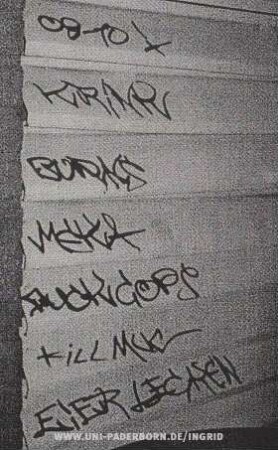 08-10
BURNS
MEKA
FUCK COPS
KILL MUC
EIER LECKEN
WWW.UNI-PADERBORN.DE/INGRID